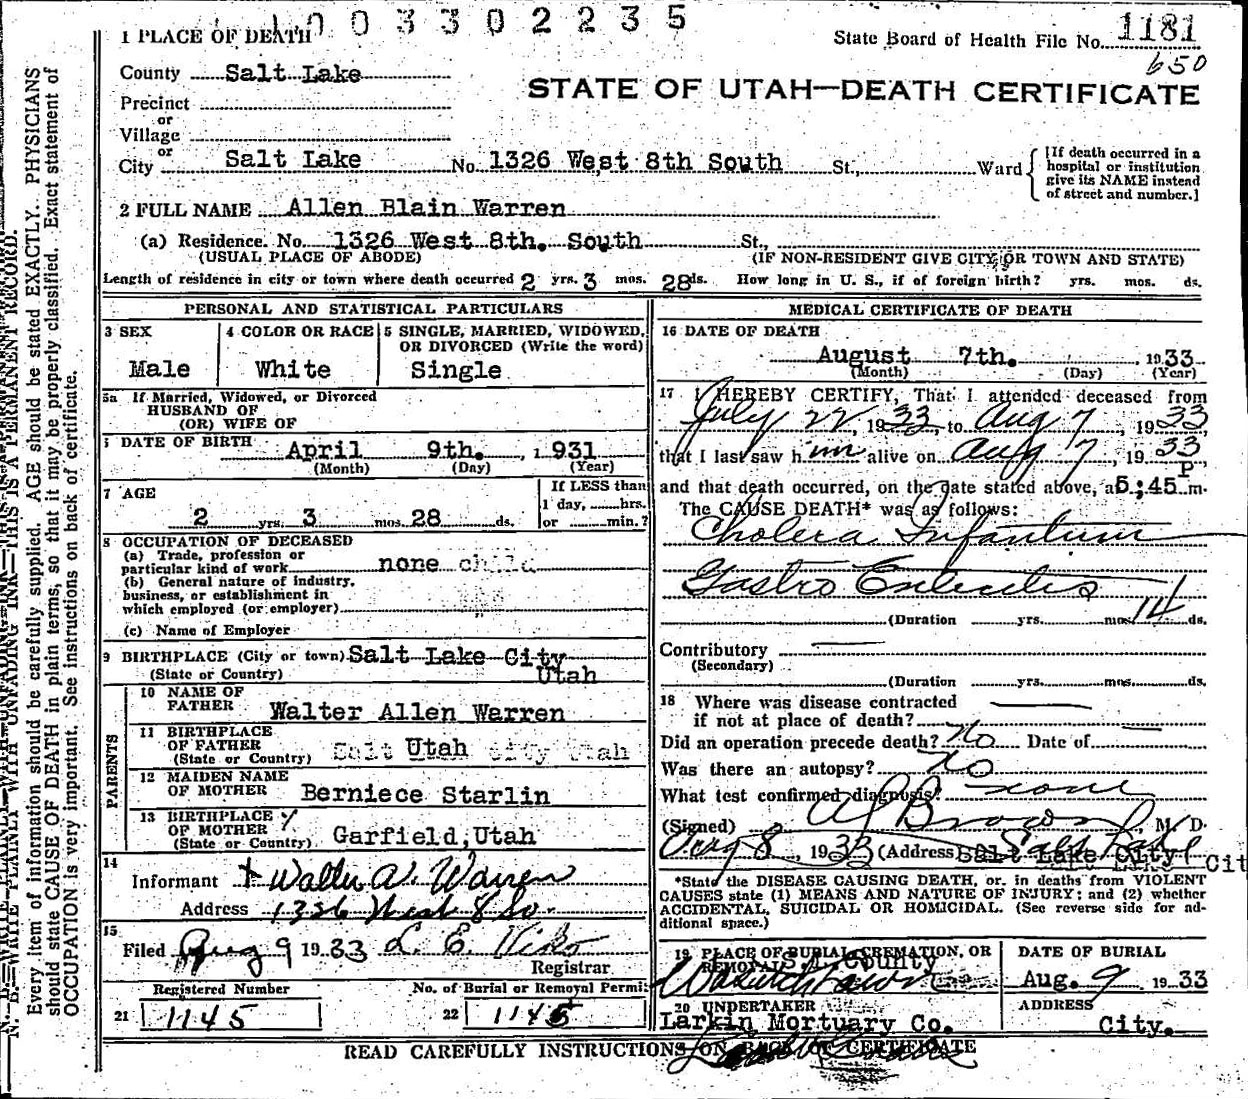 1003302235
1 PLACE OF DEATH
State Board of Health File No. 1181
650
County Salt Lake
STATE OF UTAH—DEATH CERTIFICATE
Precinct
or
Village
or
City Salt Lake No. 1326 West 8th South St., Ward
[If death occurred in a hospital or institution give its NAME instead of street and number.]
2 FULL NAME Allen Blain Warren
(a) Residence. No. 1326 West 8th. South St.,
(USUAL PLACE OF ABODE) (IF NON-RESIDENT GIVE CITY OR TOWN AND STATE)
Length of residence in city or town where death occurred 2 yrs. 3 mos. 28 ds. How long in U. S., if of foreign birth? yrs. mos. ds.
PERSONAL AND STATISTICAL PARTICULARS
3 SEX 4 COLOR OR RACE 5 SINGLE, MARRIED, WIDOWED, OR DIVORCED (Write the word)
Male White Single
5a If Married, Widowed, or Divorced
HUSBAND OF
(OR) WIFE OF
DATE OF BIRTH April 9th. , 1931
(Month) (Day) (Year)
7 AGE If LESS than
1 day, hrs.
2 yrs. 3 mos. 28 ds. or min.?
8 OCCUPATION OF DECEASED
(a) Trade, profession or
particular kind of work none child
(b) General nature of industry,
business, or establishment in
which employed (or employer)
(c) Name of Employer
9 BIRTHPLACE (City or town) Salt Lake City
(State or Country) Utah
PARENTS
10 NAME OF
FATHER Walter Allen Warren
11 BIRTHPLACE
OF FATHER Salt Utah City Utah
(State or Country)
12 MAIDEN NAME
OF MOTHER Berniece Starlin
13 BIRTHPLACE
OF MOTHER Garfield, Utah
(State or Country)
14
Informant Walter A. Warren
Address 1326 West 8 So.
15
Filed Aug 9 1933 L. E.
Registrar
Registered Number No. of Burial or Removal Permit
21 1145 22 1145
MEDICAL CERTIFICATE OF DEATH
16 DATE OF DEATH
August 7th. , 1933
(Month) (Day) (Year)
17 I HEREBY CERTIFY, That I attended deceased from
July 22, 1933, to Aug 7, 1933
that I last saw him alive on Aug 7, 1933
P
and that death occurred, on the date stated above, at 5:45 m.
The CAUSE DEATH* was as follows:
Cholera Infantum
Gastro Enteritis
(Duration yrs. mos. 14 ds.
Contributory
(Secondary)
(Duration yrs. mos. ds.
18 Where was disease contracted
if not at place of death?
Did an operation precede death? No Date of
Was there an autopsy? No
What test confirmed diagnosis? none
(Signed) Brown, M. D.
Aug 8, 1933 (Address Salt Lake City
*State the DISEASE CAUSING DEATH, or, in deaths from VIOLENT
CAUSES state (1) MEANS AND NATURE OF INJURY; and (2) whether
ACCIDENTAL, SUICIDAL OR HOMICIDAL. (See reverse side for additional space.)
19 PLACE OF BURIAL, CREMATION, OR REMOVAL DATE OF BURIAL
S.L. County
Wasatch Lawn Aug. 9 1933
20 UNDERTAKER ADDRESS
Larkin Mortuary Co. City.
READ CAREFULLY INSTRUCTIONS ON BACK OF CERTIFICATE
N. B.—WRITE PLAINLY WITH UNFADING INK—THIS IS A PERMANENT RECORD.
Every item of information should be carefully supplied. AGE should be stated EXACTLY. PHYSICIANS
should state CAUSE OF DEATH in plain terms, so that it may be properly classified. Exact statement of
OCCUPATION is very important. See instructions on back of certificate.